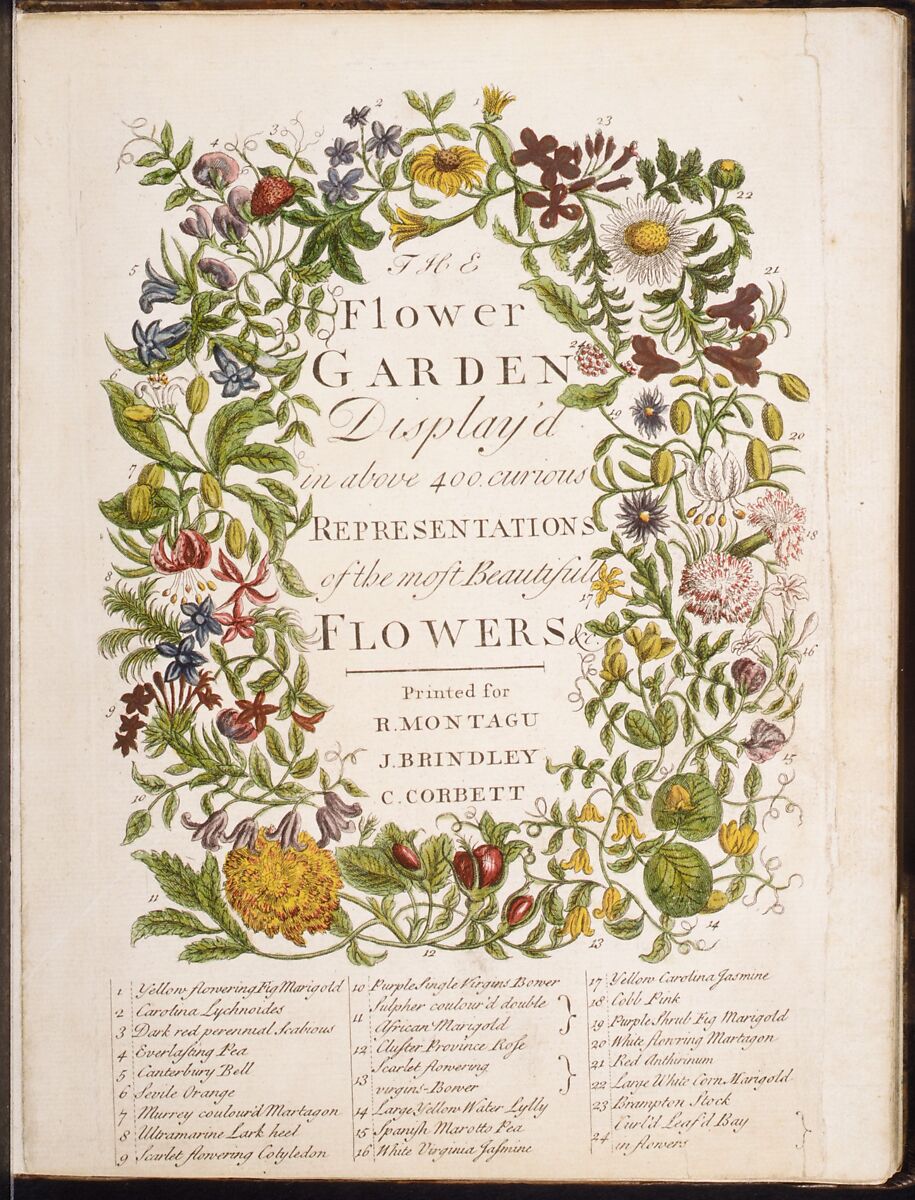 THE
Flower
GARDEN
Display'd
in above 400 curious
REPRESENTATIONS
of the most Beautifull
FLOWERS &c.
Printed for
R. MONTAGU
J. BRINDLEY
C. CORBETT
1
2
3
4
5
6
7
8
9
10
11
12
13
14
15
16
17
18
19
20
21
22
23
24
1 Yellow flowering Fig Marigold
2 Carolina Lychnoides
3 Dark red perennial Scabious
4 Everlasting Pea
5 Canterbury Bell
6 Sevile Orange
7 Murrey coulour'd Martagon
8 Ultramarine Lark heel
9 Scarlet flowering Cotyledon
10 Purple Single Virgins Bower
11 Sulpher coulour'd double
African Marigold
12 Cluster Province Rose
13 Scarlet flowering
virgins-Bower
14 Large Yellow Water Lylly
15 Spanish Marotto Pea
16 White Virginia Jasmine
17 Yellow Carolina Jasmine
18 Cobb Pink
19 Purple Shrub Fig Marigold
20 White flow'ring Martagon
21 Red Anthirinum
22 Large White Corn Marigold
23 Brampton Stock
24 Curl'd Leaf'd Bay
in flowers